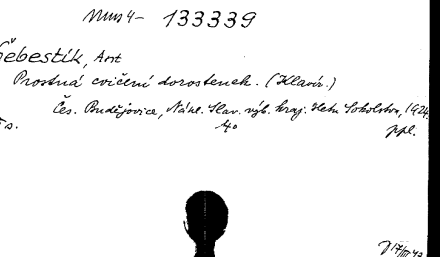 Mus 4- 133339
Šebestík, Ant
Prostná cvičení dorostenek. (Klavír.)
Čes. Budějovice, Nákl. Slav. výb. kraj. Sletu Sokolstva, 1924.
s. 4° ppl.